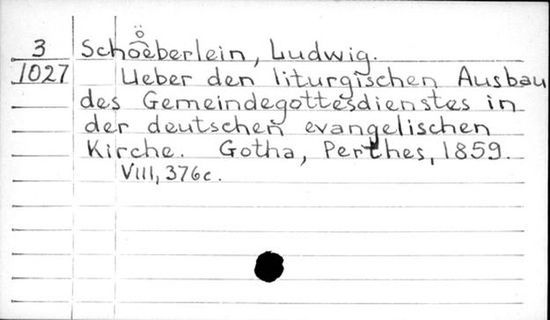 ö
3 Schoeberlein, Ludwig.
1027 Ueber den liturgischen Ausbau
des Gemeindegottesdienstes in
der deutschen evangelischen
Kirche. Gotha, Perthes, 1859.
VIII, 376c.